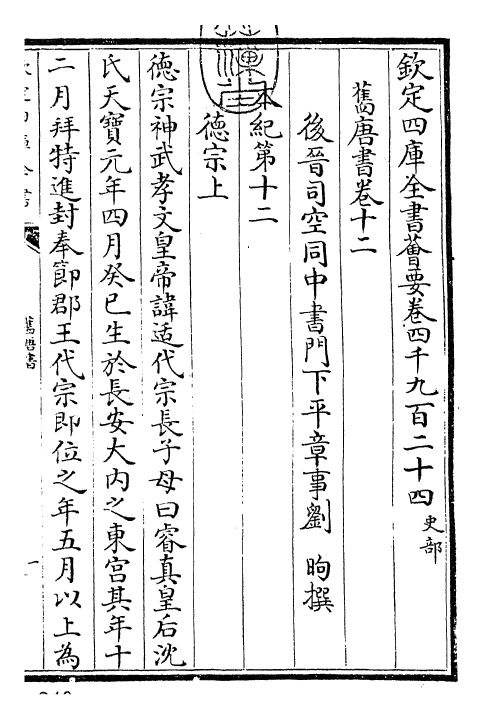 欽定四庫全書薈要卷四千九百二十四 史部
舊唐書卷十二
後晉司空同中書門下平章事劉 昫撰
本紀第十二
德宗上
德宗神武孝文皇帝諱适代宗長子母曰睿真皇后沈
氏天寶元年四月癸巳生於長安大内之東宮其年十
二月拜特進封奉節郡王代宗即位之年五月以上為
舊唐書
一